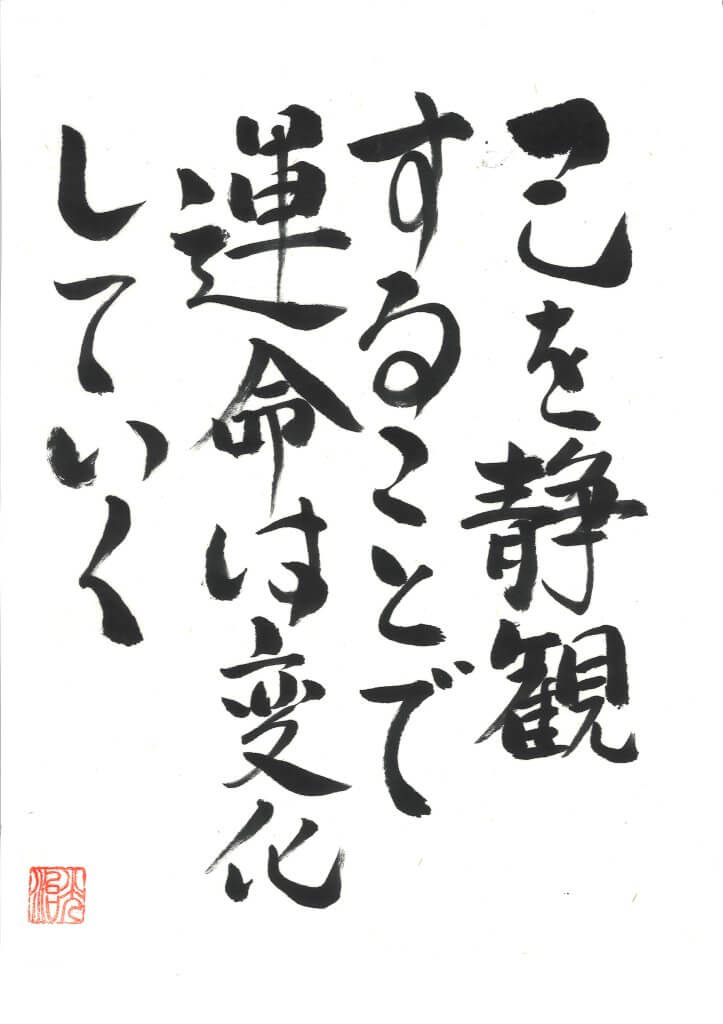 己を静観
することで
運命は変化
していく